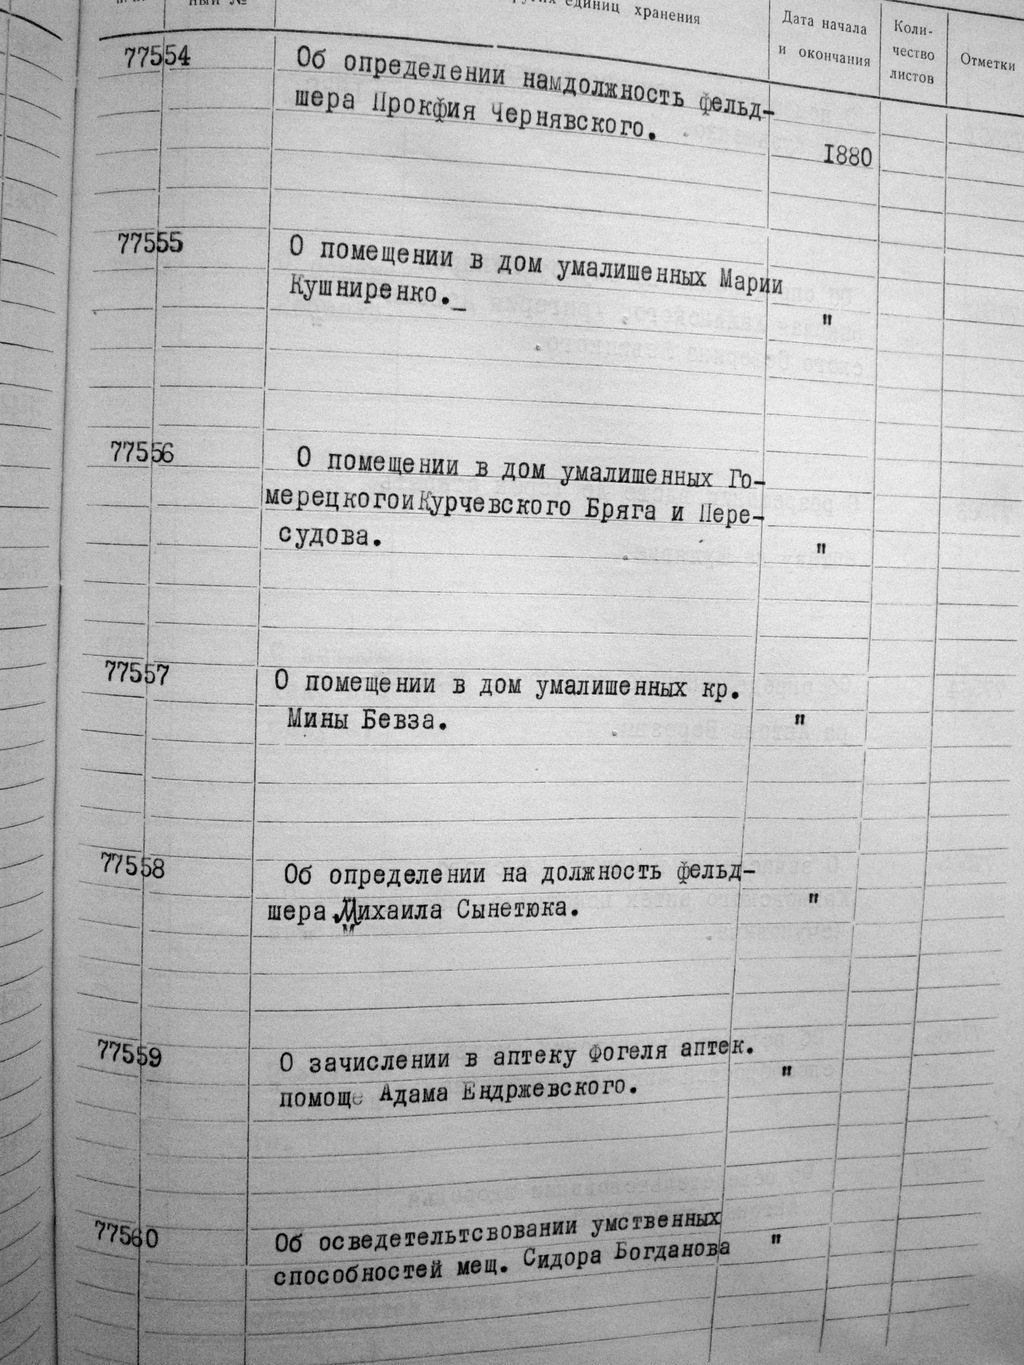 единиц хранения
Дата начала
и окончания
Коли-
чество
листов
Отметки
77554 Об определении намдолжность фельд-
шера Прокфия Чернявского.
1880
77555 О помещении в дом умалишенных Марии
Кушниренко._ "
77556 О помещении в дом умалишенных Го-
мерецкогоиКурчевского Бряга и Пере-
судова. "
77557 О помещении в дом умалишенных кр.
Мины Бевза. "
77558 Об определении на должность фельд-
шера Михаила Сынетюка. "
77559 О зачислении в аптеку Фогеля аптек.
помоще Адама Ендржевского. "
77560 Об осведетельтсвовании умственных
способностей мещ. Сидора Богданова "